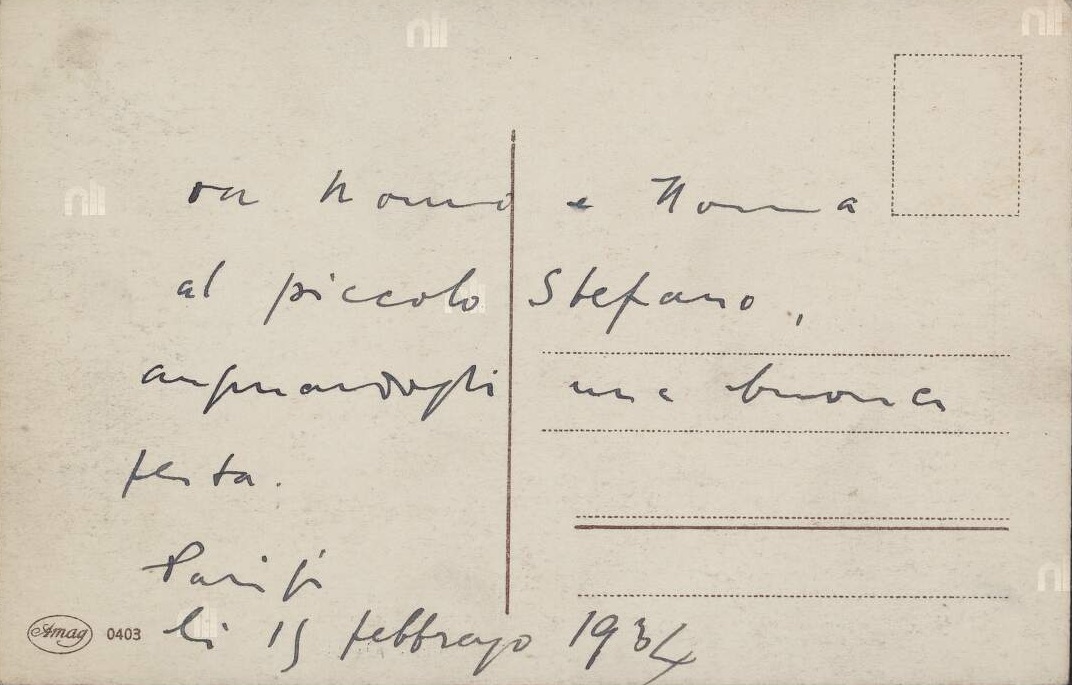 Da Nonno e Nonna
al piccolo Stefano,
augurandogli una buona
festa.
Parigi
li 15 febbrajo 1934
Amag 0403